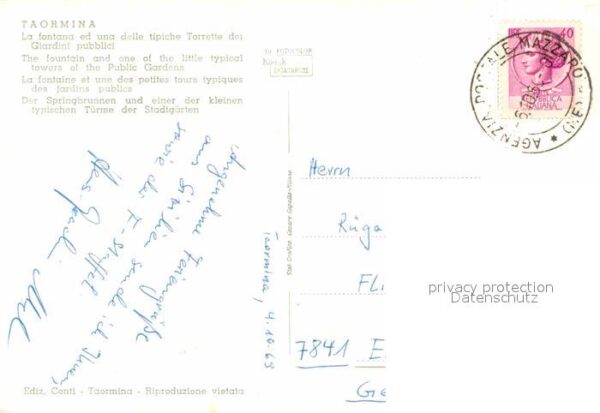 TAORMINA
La fontana ed una delle tipiche Torrette dei
Giardini pubblici
The fountain and one of the little typical
towers of the Public Gardens
La fontaine et une des petites tours typiques
des jardins publics
Der Springbrunnen und einer der kleinen
typischen Türme der Stadtgärten
Angenehme Feriengrüße
aus Sizilien sende ich Ihnen,
sowie der F-Staffel
Taormina, 4.10.69
Kodak
Ediz. Conti - Taormina - Riproduzione vietata
LIRE 40
REPUBBLICA
ITALIANA
AGENZIA POSTALE MAZZARO (ME)
Herrn
Rüga
Fl
7841 E
Ge
privacy protection
Datenschutz